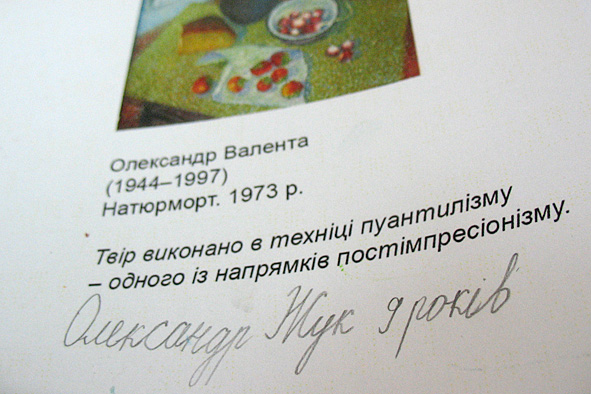 Олександр Валента
(1944–1997)
Натюрморт. 1973 р.
Твір виконано в техніці пуантилізму
– одного із напрямків постімпресіонізму.
Олександр Жук 9 років